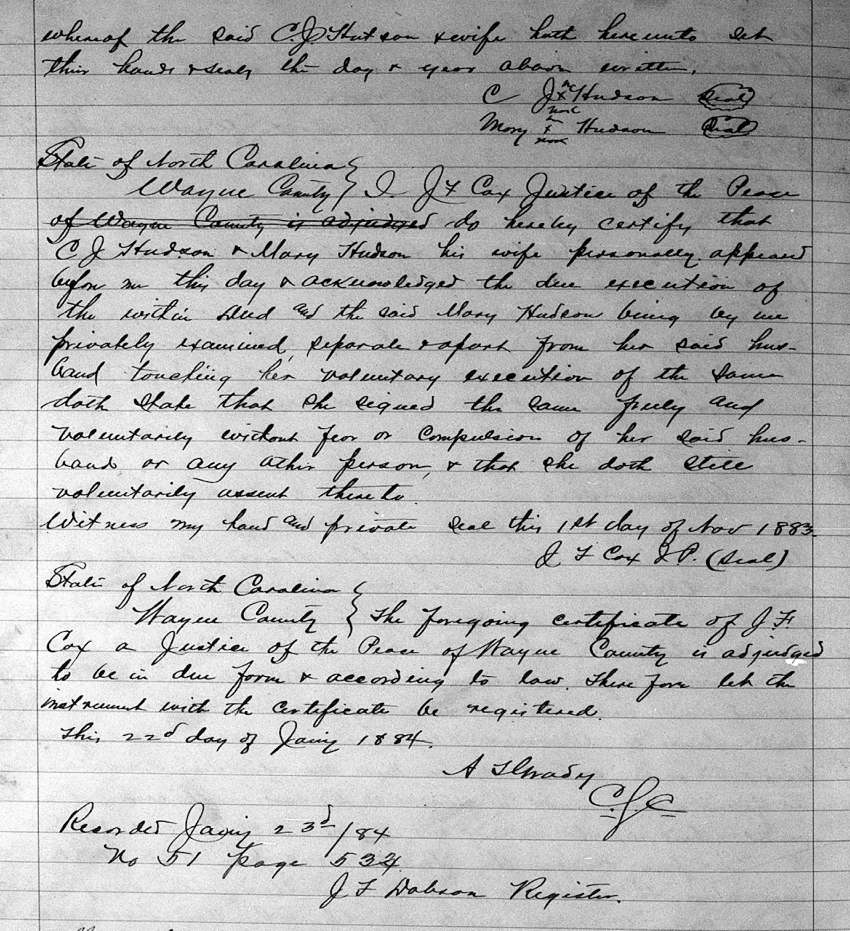 whereof the said C.J. Hutson & wife hath hereunto set
their hands & seals the day & year above written.
C J his x mark Hudson (Seal)
Mary her x mark Hudson (Seal)
State of North Carolina
Wayne County } I. J F Cox Justice of the Peace
of Wayne County is adjudged do hereby certify that
C J Hudson & Mary Hudson his wife personally appeared
before me this day & acknowledged the due execution of
the within deed and the said Mary Hudson being by me
privately examined, separate & apart from her said hus-
band touching her voluntary execution of the same
doth state that she signed the same freely and
voluntarily without fear or compulsion of her said hus-
band or any other person, & that she doth still
voluntarily assent thereto.
Witness my hand and private seal this 1st day of Nov 1883.
J F Cox J.P. (Seal)
State of North Carolina
Wayne County } The foregoing certificate of J.F.
Cox a Justice of the Peace of Wayne County is adjudged
to be in due form & according to law. Therefore let the
instrument with the certificate be registered.
This 22d day of Jany 1884.
A T Grady
C.S.C
Recorded Jany 23d/84
No 51 page 532
J F Dobson Register.